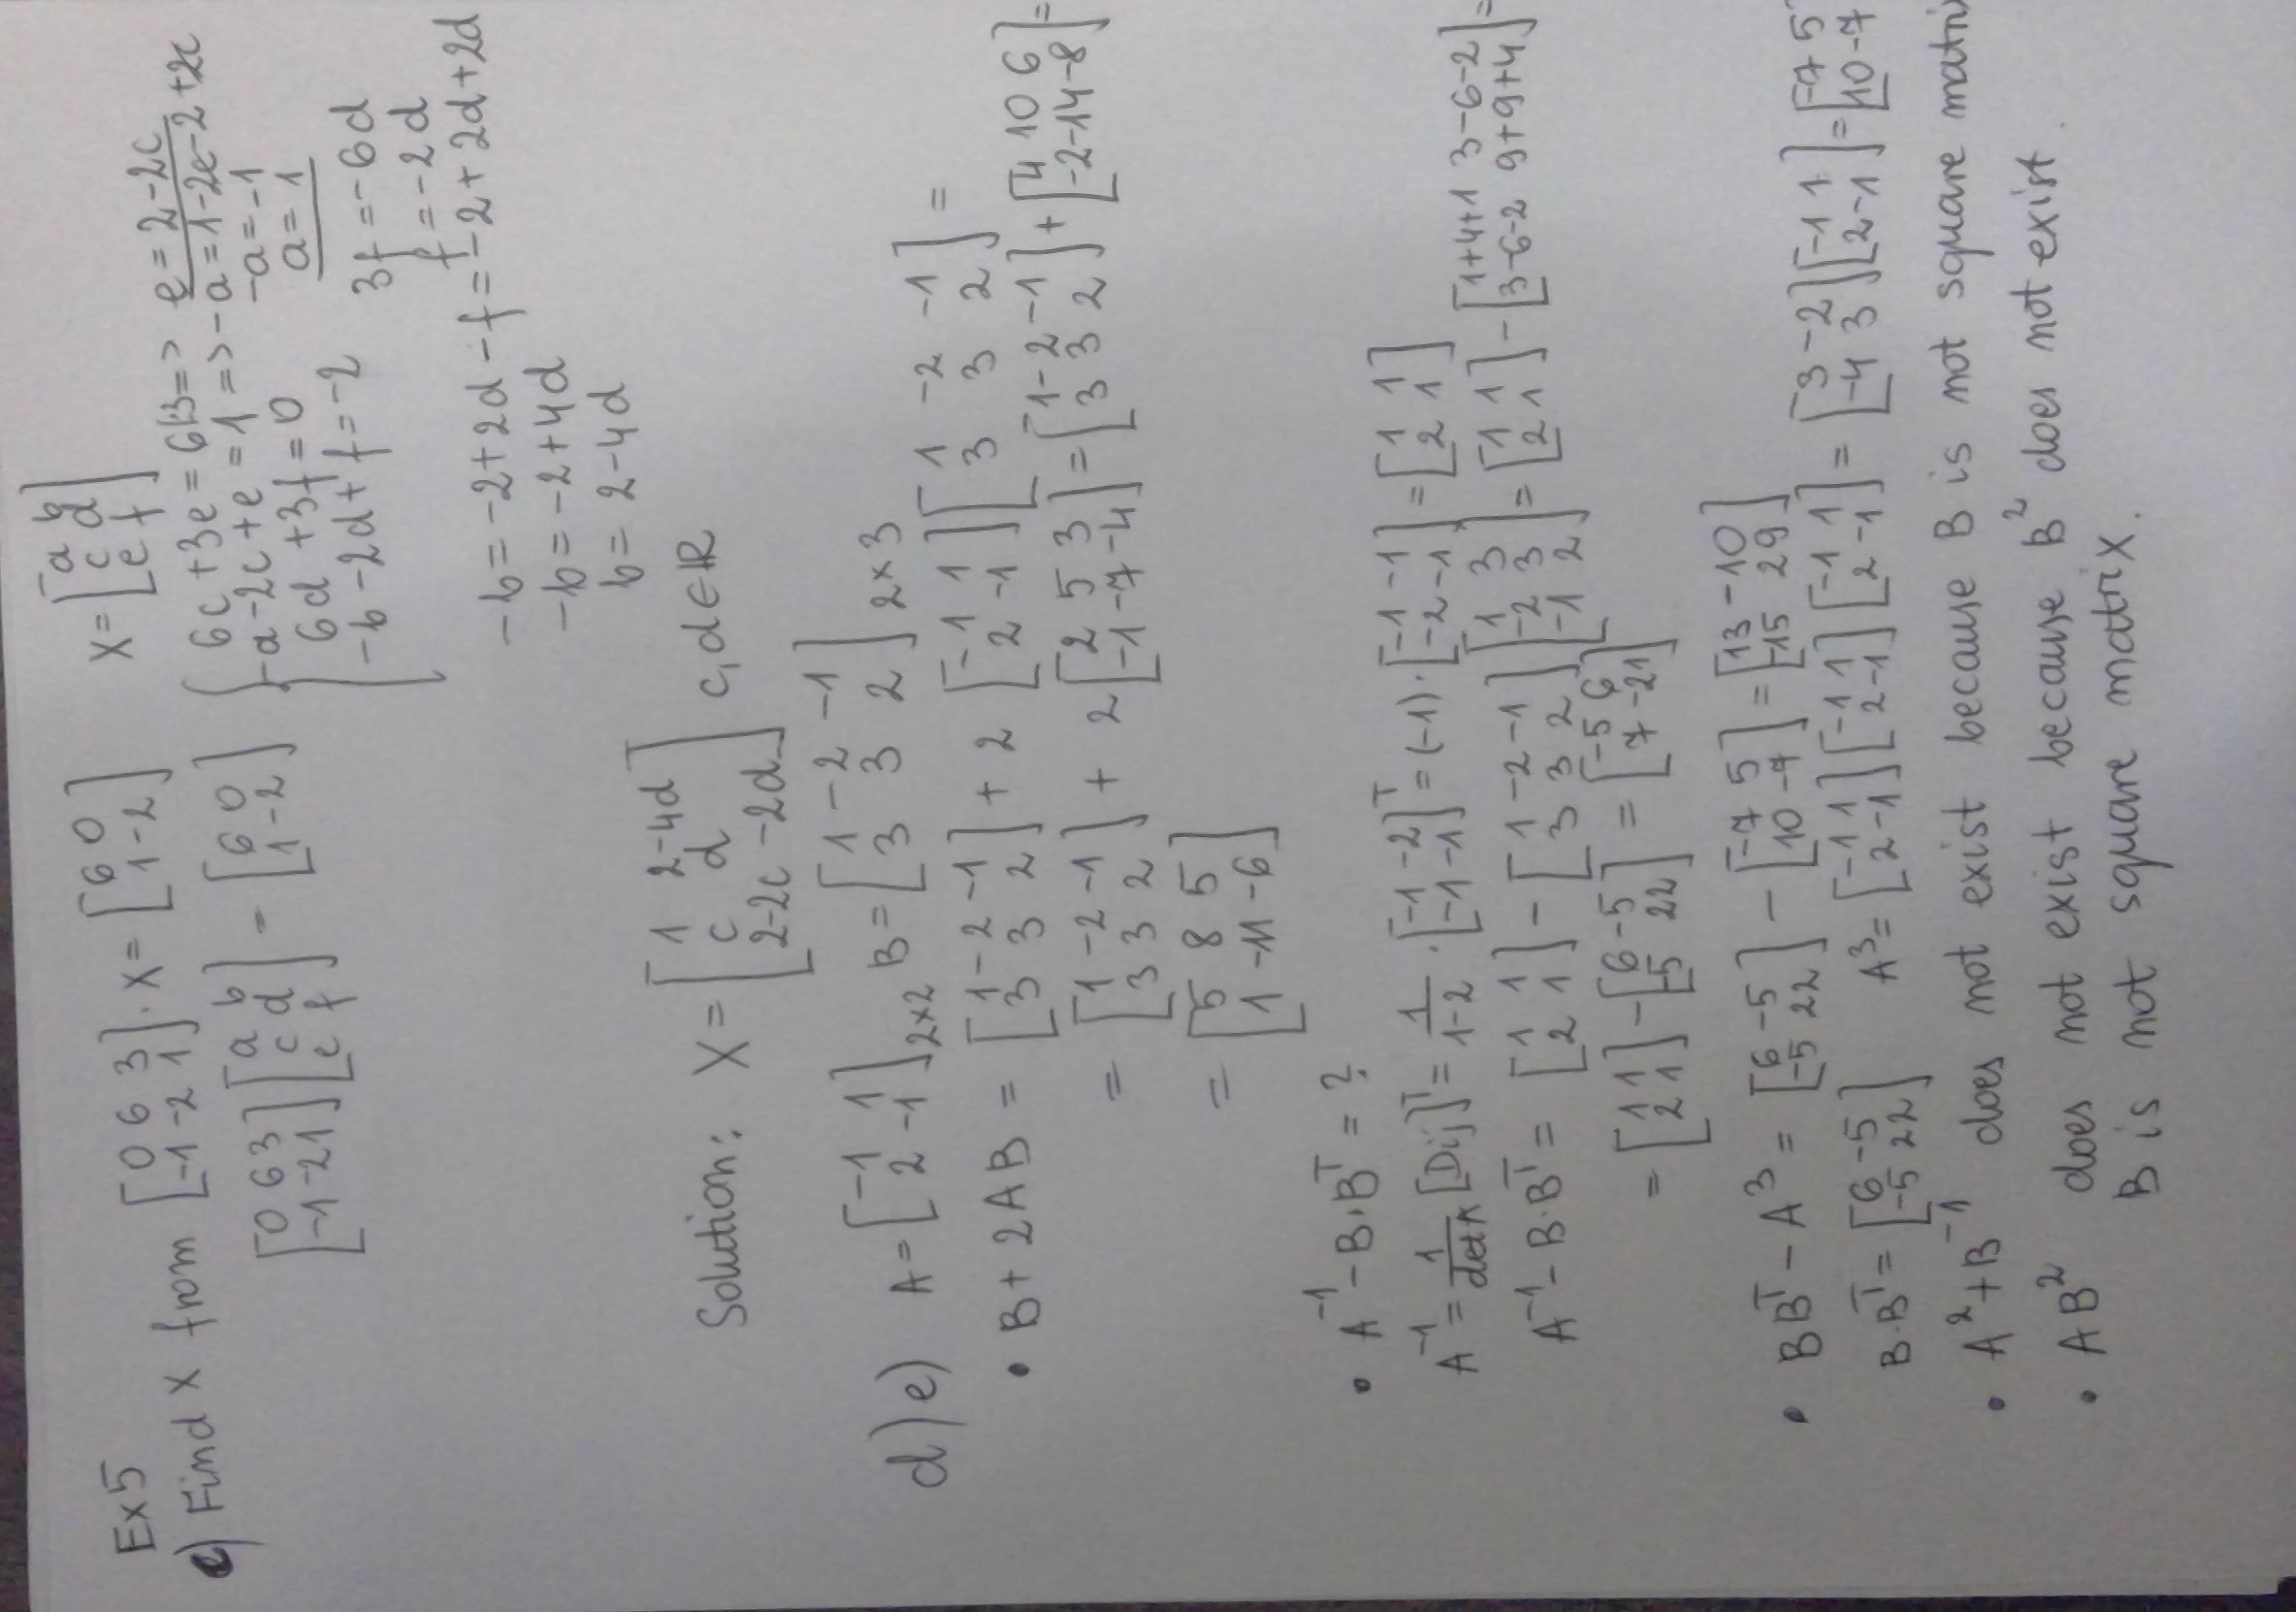 Ex 5
c) Find X from [0 6 3; -1 -2 1] · X = [6 0; 1 -2]    X = [a b; c d; e f]
[0 6 3; -1 -2 1] [a b; c d; e f] = [6 0; 1 -2]
6c + 3e = 6 |:3 => e = 2 - 2c
-a - 2c + e = 1 => -a = 1 - 2e - 2 + 2c
-a = -1
6d + 3f = 0    a = 1
-b - 2d + f = -2
3f = -6d
f = -2d
-b = -2 + 2d - f = -2 + 2d + 2d
-b = -2 + 4d
b = 2 - 4d
Solution: X = [1 2-4d; c d; 2-2c -2d] c, d ∈ ℝ
d) e) A = [-1 1; 2 -1] 2×2 B = [1 -2 -1; 3 3 2] 2×3
• B + 2AB = [1 -2 -1; 3 3 2] + 2 [-1 1; 2 -1] [1 -2 -1; 3 3 2] =
= [1 -2 -1; 3 3 2] + 2 [2 5 3; -1 -7 -4] = [1 -2 -1; 3 3 2] + [4 10 6; -2 -14 -8] =
= [5 8 5; 1 -11 -6]
• A⁻¹ - B·Bᵀ = ?
A⁻¹ = 1/det A [Dij]ᵀ = 1/(1-2) · [-1 -2; -1 -1]ᵀ = (-1) · [-1 -1; -2 -1] = [1 1; 2 1]
A⁻¹ - B·Bᵀ = [1 1; 2 1] - [1 -2 -1; 3 3 2] [1 3; -2 3; -1 2] = [1 1; 2 1] - [1+4+1 3-6-2; 3-6-2 9+9+4] =
= [1 1; 2 1] - [6 -5; -5 22] = [-5 6; 7 -21]
• BBᵀ - A³ = [6 -5; -5 22] - [-7 5; 10 -7] = [13 -10; -15 29]
B·Bᵀ = [6 -5; -5 22]    A³ = [-1 1; 2 -1] [-1 1; 2 -1] [-1 1; 2 -1] = [3 -2; -4 3] [-1 1; 2 -1] = [-7 5; 10 -7
• A² + B⁻¹ does not exist because B is not square matri
• AB² does not exist because B² does not exist.
B is not square matrix.